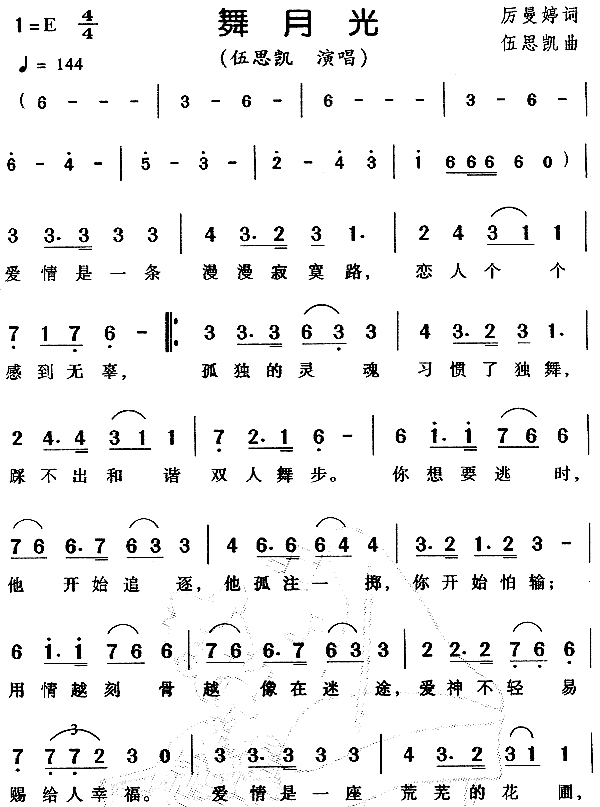 1=E 4/4 舞月光 厉曼婷 词
♩=144 (伍思凯 演唱) 伍思凯 曲
( 6 - - - | 3 - 6 - | 6 - - - | 3 - 6 - |
6 - 4 - | 5 - 3 - | 2 - 4 3 | 1 6 6 6 6 0 ) |
3 3. 3 3 3 | 4 3. 2 3 1. | 2 4 3 1 1 |
爱情是一条 漫漫寂寞路, 恋人个个
7 1 7 6 - |: 3 3. 3 6 3 3 | 4 3. 2 3 1. |
感到无辜, 孤独的灵魂 习惯了独舞,
2 4. 4 3 1 1 | 7 2. 1 6 - | 6 1. 1 7 6 6 |
踩不出和谐 双人舞步。 你想要逃时,
7 6 6. 7 6 3 3 | 4 6. 6 6 4 4 | 3. 2 1. 2 3 - |
他开始追逐, 他孤注一掷, 你开始怕输;
6 1. 1 7 6 6 | 7 6 6. 7 6 3 3 | 2 2. 2 7 6 6 |
用情越刻骨越 像在迷途, 爱神不轻易
7 7 7 2 3 0 | 3 3. 3 3 3 | 4 3. 2 3 1 1 |
3
赐给人幸福。 爱情是一座 荒芜的花圃,